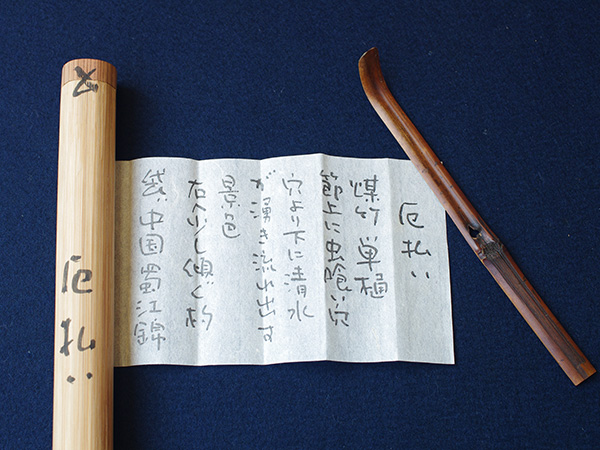 厄払い
煤竹 単樋
節上に虫喰い穴
穴より下に清水
が湧き流れ出す
景色
右へ少し傾ぐ杓
袋 中国蜀江錦
厄払い